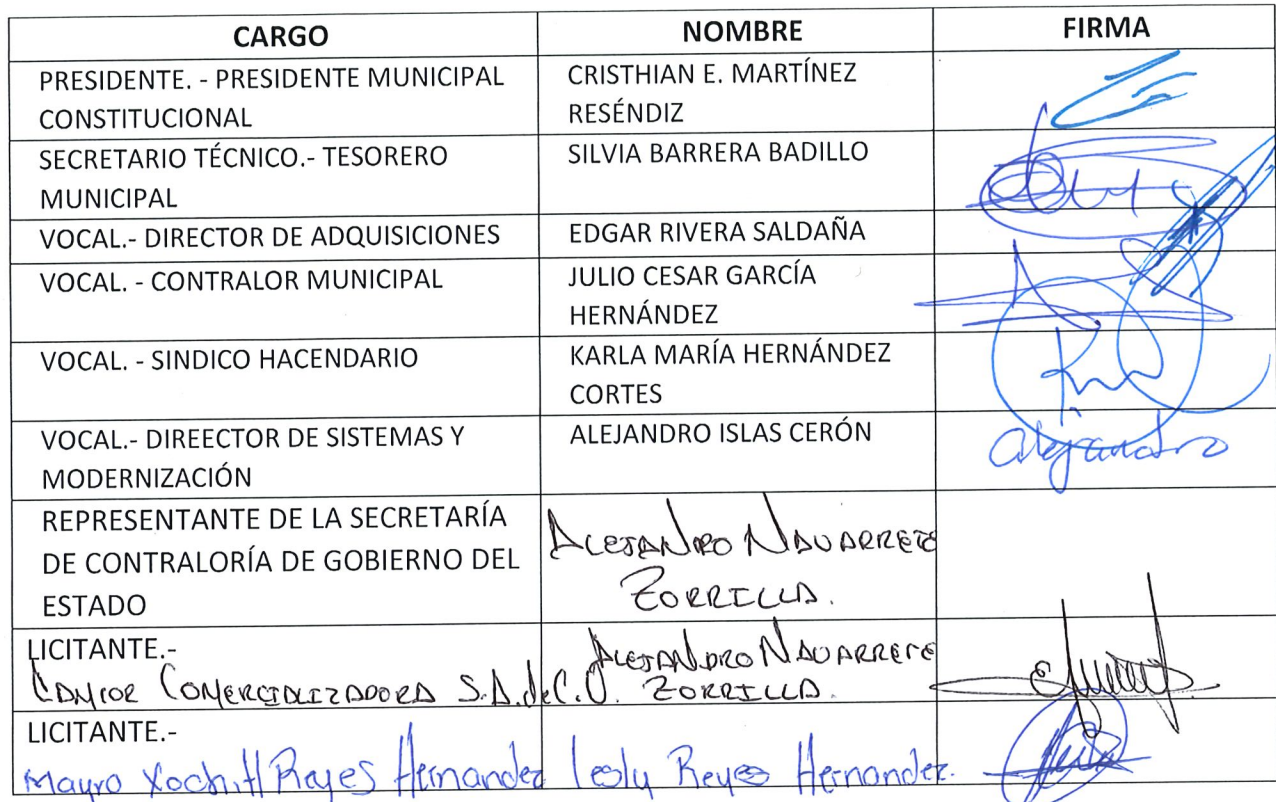 CARGO NOMBRE FIRMA
PRESIDENTE. - PRESIDENTE MUNICIPAL CONSTITUCIONAL
CRISTHIAN E. MARTÍNEZ RESÉNDIZ
SECRETARIO TÉCNICO.- TESORERO MUNICIPAL
SILVIA BARRERA BADILLO
VOCAL.- DIRECTOR DE ADQUISICIONES
EDGAR RIVERA SALDAÑA
VOCAL. - CONTRALOR MUNICIPAL
JULIO CESAR GARCÍA HERNÁNDEZ
VOCAL. - SINDICO HACENDARIO
KARLA MARÍA HERNÁNDEZ CORTES
VOCAL.- DIREECTOR DE SISTEMAS Y MODERNIZACIÓN
ALEJANDRO ISLAS CERÓN
Alejandro
REPRESENTANTE DE LA SECRETARÍA DE CONTRALORÍA DE GOBIERNO DEL ESTADO
ALEJANDRO NAVARRETE ZORRILLA.
LICITANTE.-
COMERCIALIZADORA S.A. de C.V.
ALEJANDRO NAVARRETE ZORRILLA.
LICITANTE.-
Mayro Xochitl Reyes Hernandez
lesly Reyes Hernandez.